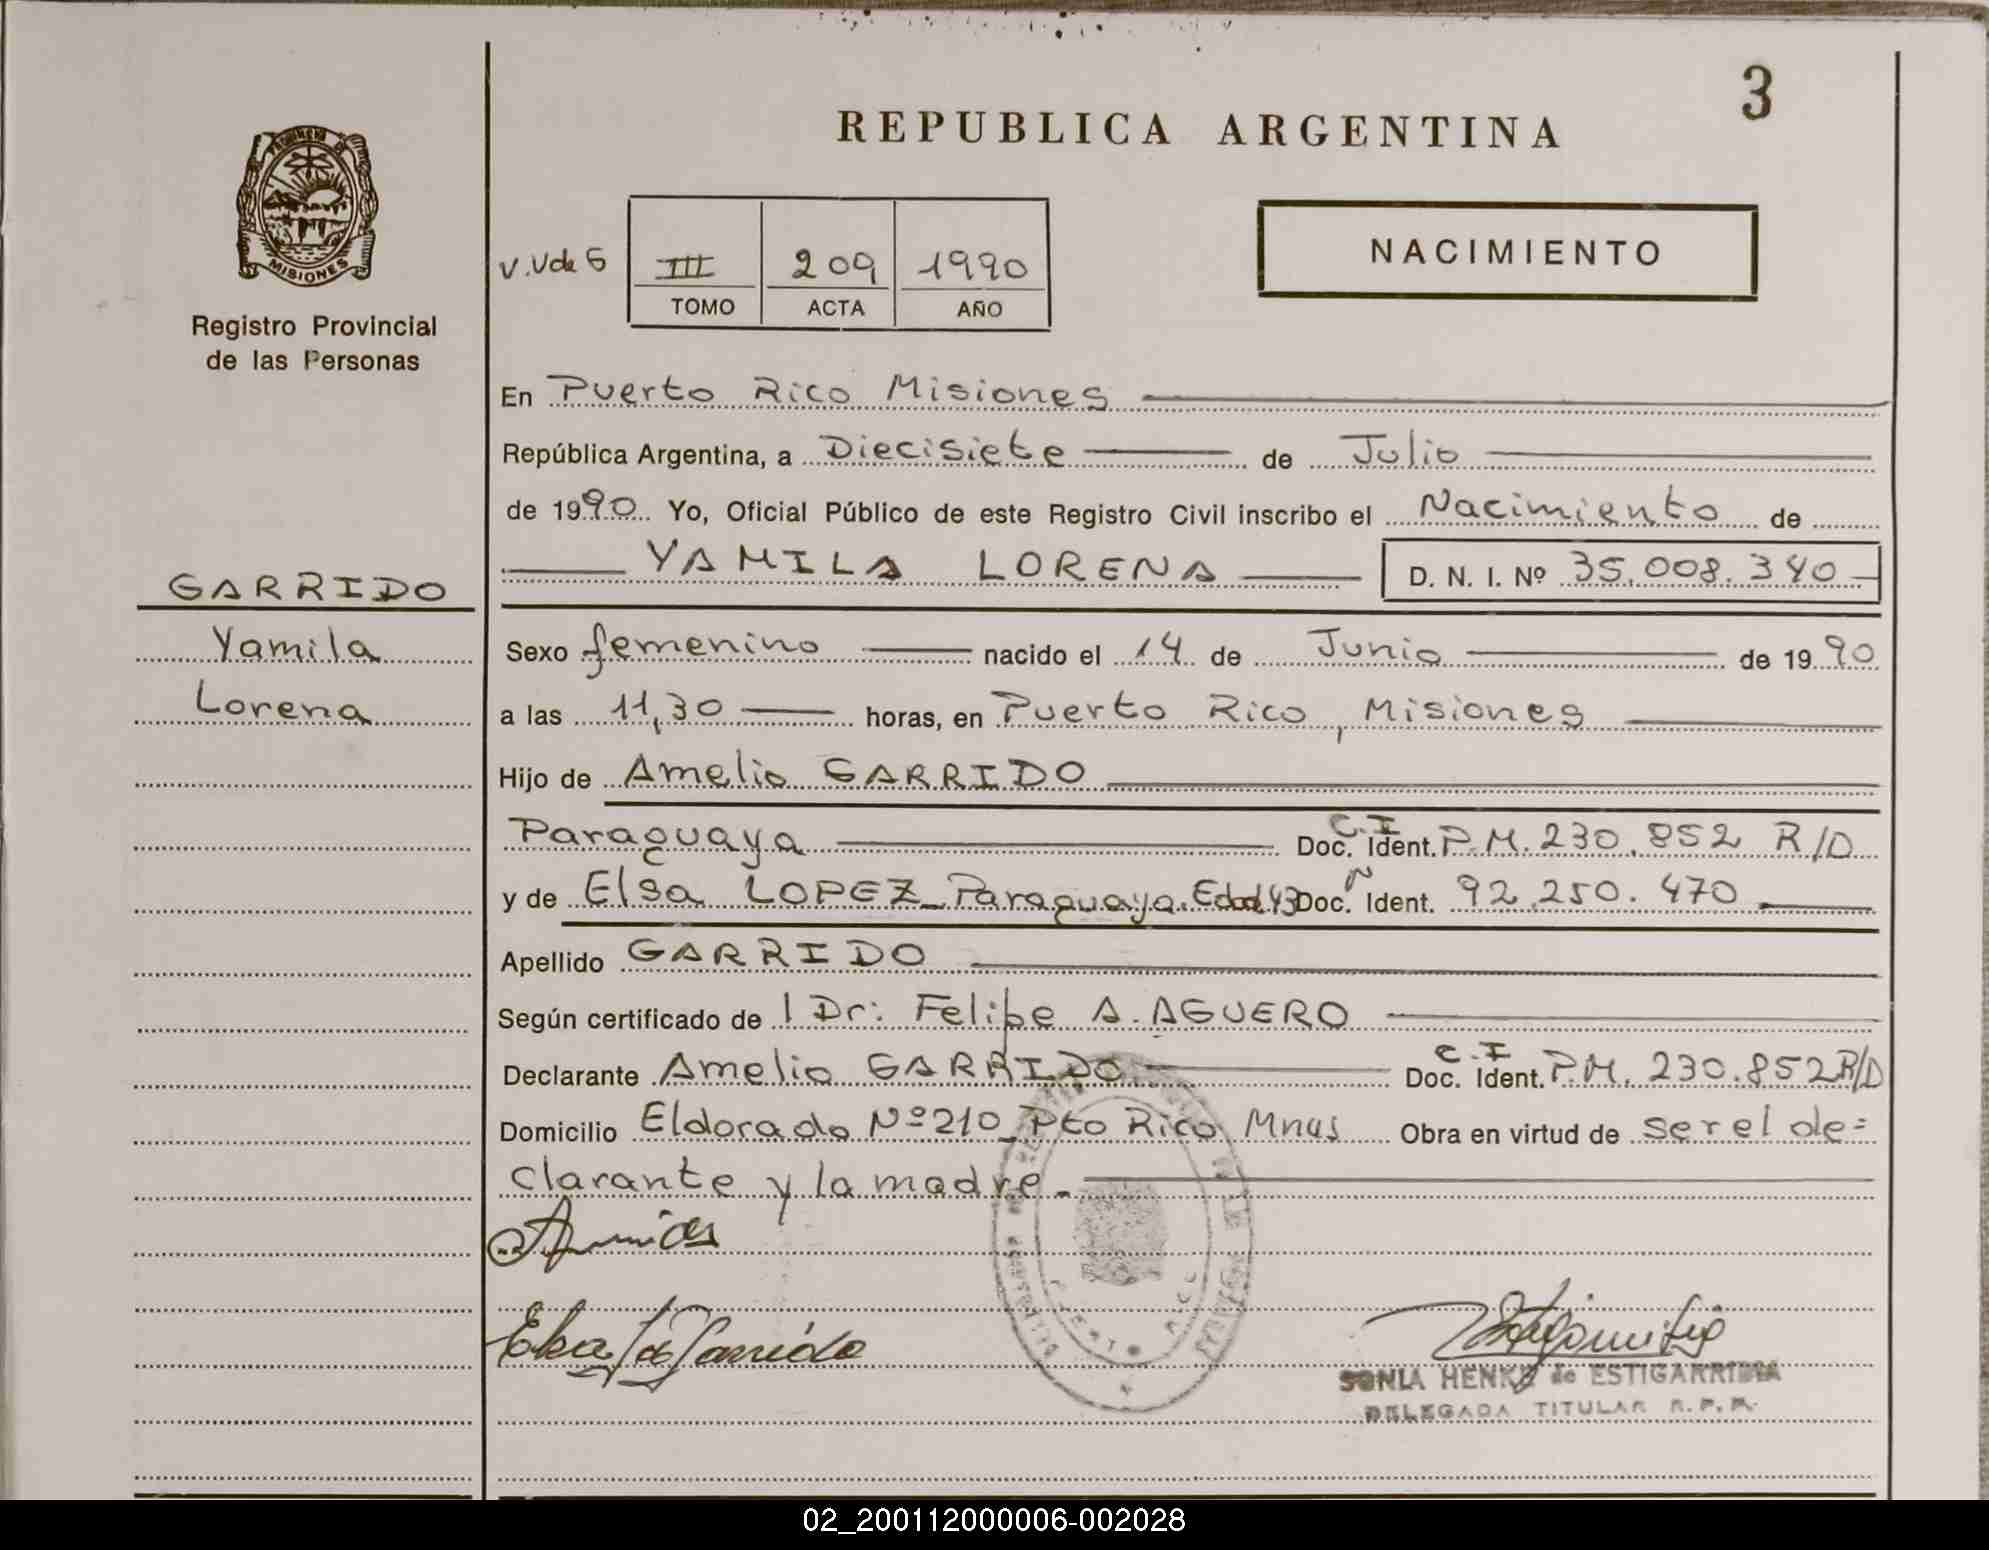 3
REPUBLICA ARGENTINA
MISIONES
Registro Provincial
de las Personas
V.Vda G
III 209 1990
TOMO ACTA AÑO
NACIMIENTO
En Puerto Rico Misiones
República Argentina, a Diecisiete de Julio
de 1990 Yo, Oficial Público de este Registro Civil inscribo el Nacimiento de
YAMILA LORENA D. N. I. Nº 35.008.340
GARRIDO
Yamila
Lorena
Sexo femenino nacido el 14 de Junio de 1990
a las 11,30 horas, en Puerto Rico, Misiones
Hijo de Amelio GARRIDO
Paraguaya C.I Doc. Ident. P.M. 230.852 R/D
y de Elsa LOPEZ_Paraguaya. Edad 43 Doc. N Ident. 92.250.470
Apellido GARRIDO
Según certificado de l Dr: Felipe A. AGUERO
Declarante Amelio GARRIDO C.I Doc. Ident. P.M. 230.852 R/D
Domicilio Eldorado Nº 210_Pto Rico Mnes Obra en virtud de ser el de=
clarante y la madre.
SONIA HENKE de ESTIGARRIBIA
DELEGADA TITULAR R.P.P.
02_200112000006-002028